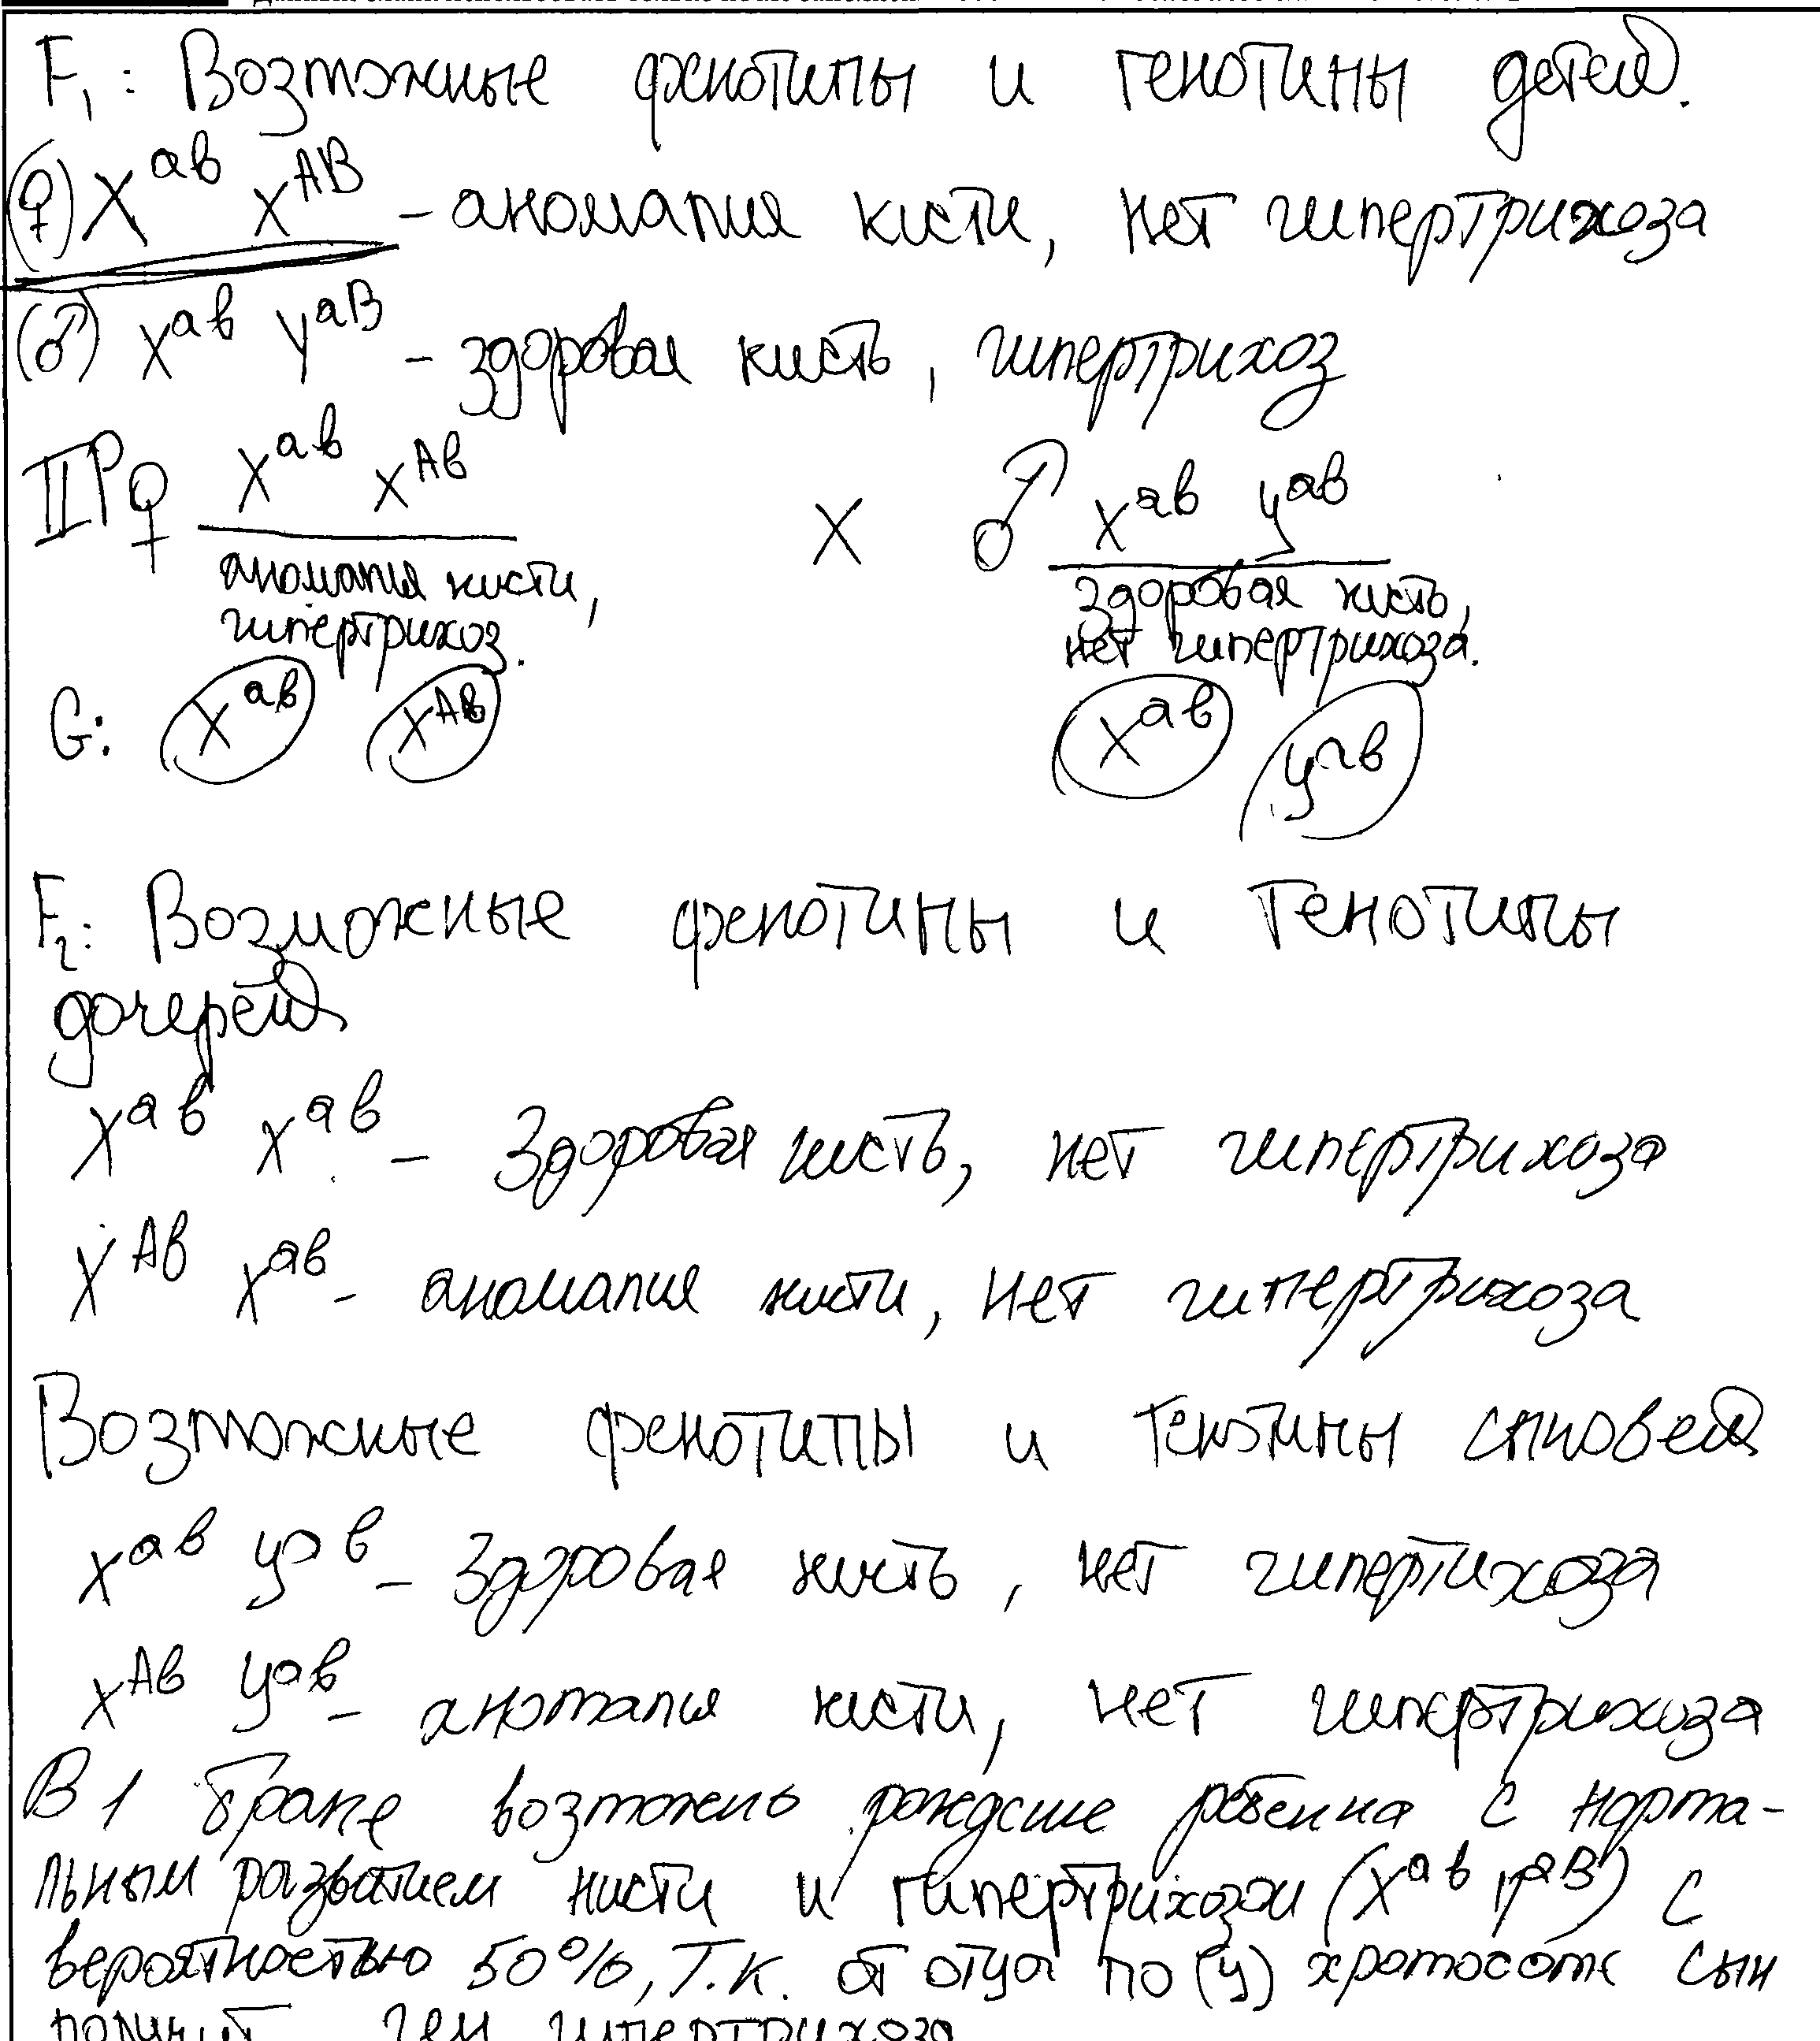 F₁: Возможные фенотипы и генотипы детей.
(♀) X^ав X^АВ – аномалия кисти, нет гипертрихоза
(♂) X^ав Y^аВ – здоровая кисть, гипертрихоз
IIP ♀ X^ав X^Ав X ♂ X^ав У^ав
аномалия кисти, здоровая кисть,
гипертрихоз. нет гипертрихоза.
G: X^ав X^Ав X^ав У^ав
F₂: Возможные фенотипы и генотипы
дочерей
X^ав X^ав – здоровая кисть, нет гипертрихоза
X^Ав X^ав – аномалия кисти, нет гипертрихоза
Возможные фенотипы и генотипы сыновей
X^ав У^ав – здоровая кисть, нет гипертихоза
X^Ав У^ав – аномалия кисти, нет гипертрихоза
В 1 браке возможно рождение ребенка с норма-
льным развитием кисти и гипертрихозом (X^ав Y^аВ) с
вероятностью 50%, т.к. от отца по (у) хромосоме сын
получит ген гипертрихоза